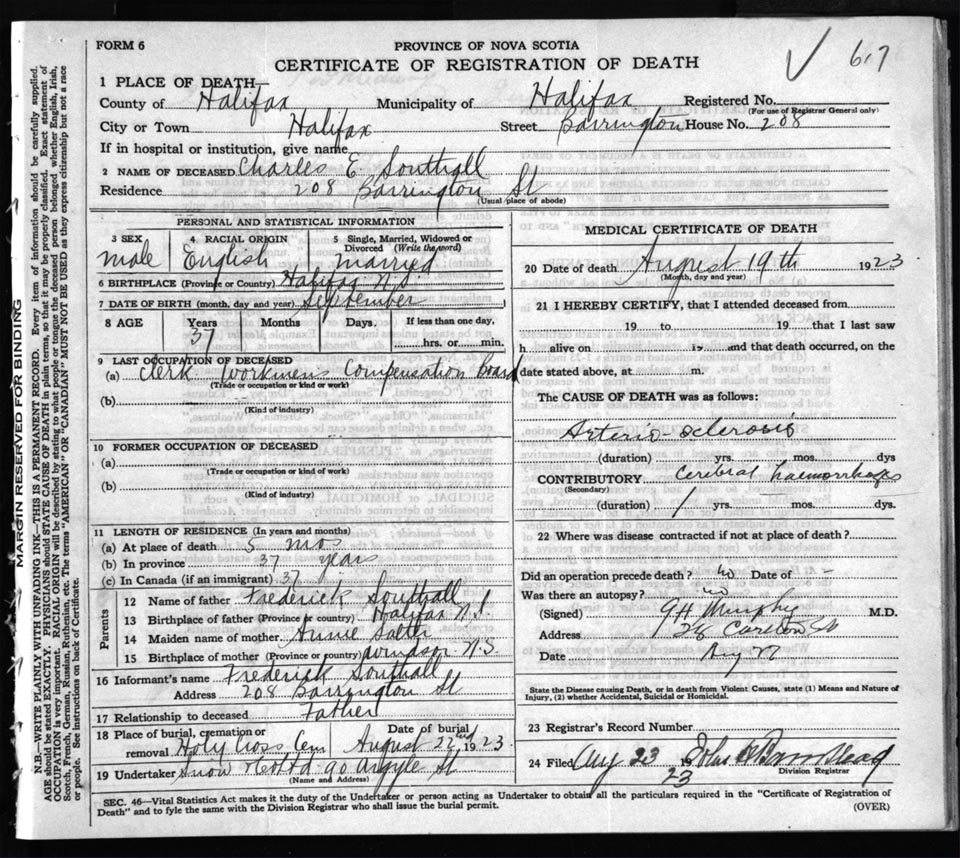 FORM 6
PROVINCE OF NOVA SCOTIA
CERTIFICATE OF REGISTRATION OF DEATH
617
1 PLACE OF DEATH—
County of Halifax Municipality of Halifax Registered No.
(For use of Registrar General only)
City or Town Halifax Street Barrington House No. 208
If in hospital or institution, give name
2 NAME OF DECEASED Charles E Southall
Residence 208 Barrington St
(Usual place of abode)
PERSONAL AND STATISTICAL INFORMATION
3 SEX 4 RACIAL ORIGIN 5 Single, Married, Widowed or Divorced (Write the word)
male English married
6 BIRTHPLACE (Province or Country) Halifax N.S.
7 DATE OF BIRTH (month, day and year) September
8 AGE Years Months Days. If less than one day,
37 hrs. or min.
9 LAST OCCUPATION OF DECEASED
(a) Clerk Workmens Compensation Board
(Trade or occupation or kind or work)
(b)
(Kind of industry)
10 FORMER OCCUPATION OF DECEASED
(a)
(Trade or occupation or kind or work)
(b)
(Kind of industry)
11 LENGTH OF RESIDENCE (In years and months)
(a) At place of death 5 mos
(b) In province 37 years
(c) In Canada (if an immigrant) 37
Parents
12 Name of father Frederick Southall
13 Birthplace of father (Province or country) Halifax N.S.
14 Maiden name of mother Annie Salter
15 Birthplace of mother (Province or country) Windsor N.S.
16 Informant's name Frederick Southall
Address 208 Barrington St
17 Relationship to deceased Father
18 Place of burial, cremation or removal Holy Cross Cem Date of burial August 22nd 1923
19 Undertaker Snow & Co Ltd 90 Argyle St
(Name and Address)
MEDICAL CERTIFICATE OF DEATH
20 Date of death August 19th 1923
(Month, day and year)
21 I HEREBY CERTIFY, that I attended deceased from
19 to 19 that I last saw
h alive on 19 and that death occurred, on the
date stated above, at m.
The CAUSE OF DEATH was as follows:
Arterio-sclerosis
(duration) yrs. mos. dys
CONTRIBUTORY Cerebral haemorrhage
(Secondary)
(duration) 1 yrs. mos. dys.
22 Where was disease contracted if not at place of death?
Did an operation precede death? no Date of -
Was there an autopsy? no
(Signed) G H Murphy M.D.
Address 28 Carleton St
Date Aug
State the Disease causing Death, or in death from Violent Causes, state (1) Means and Nature of Injury, (2) whether Accidental, Suicidal or Homicidal.
23 Registrar's Record Number
24 Filed Aug 23 1923 John
Division Registrar
SEC. 46—Vital Statistics Act makes it the duty of the Undertaker or person acting as Undertaker to obtain all the particulars required in the "Certificate of Registration of Death" and to fyle the same with the Division Registrar who shall issue the burial permit.
(OVER)
MARGIN RESERVED FOR BINDING
N.B.—WRITE PLAINLY WITH UNFADING INK—THIS IS A PERMANENT RECORD. Every item of information should be carefully supplied.
AGE should be stated EXACTLY. PHYSICIANS should STATE CAUSE OF DEATH in plain terms, so that it may be properly classified. Exact statement of
OCCUPATION is very important. RACIAL ORIGIN will be described by stating to what people or tongue the deceased person belonged whether English, Irish,
Scotch, French, German, Russian, Ruthenian, etc. The terms "AMERICAN" OR "CANADIAN" MUST NOT BE USED as they express citizenship but not a race
or people. See instructions on back of Certificate.